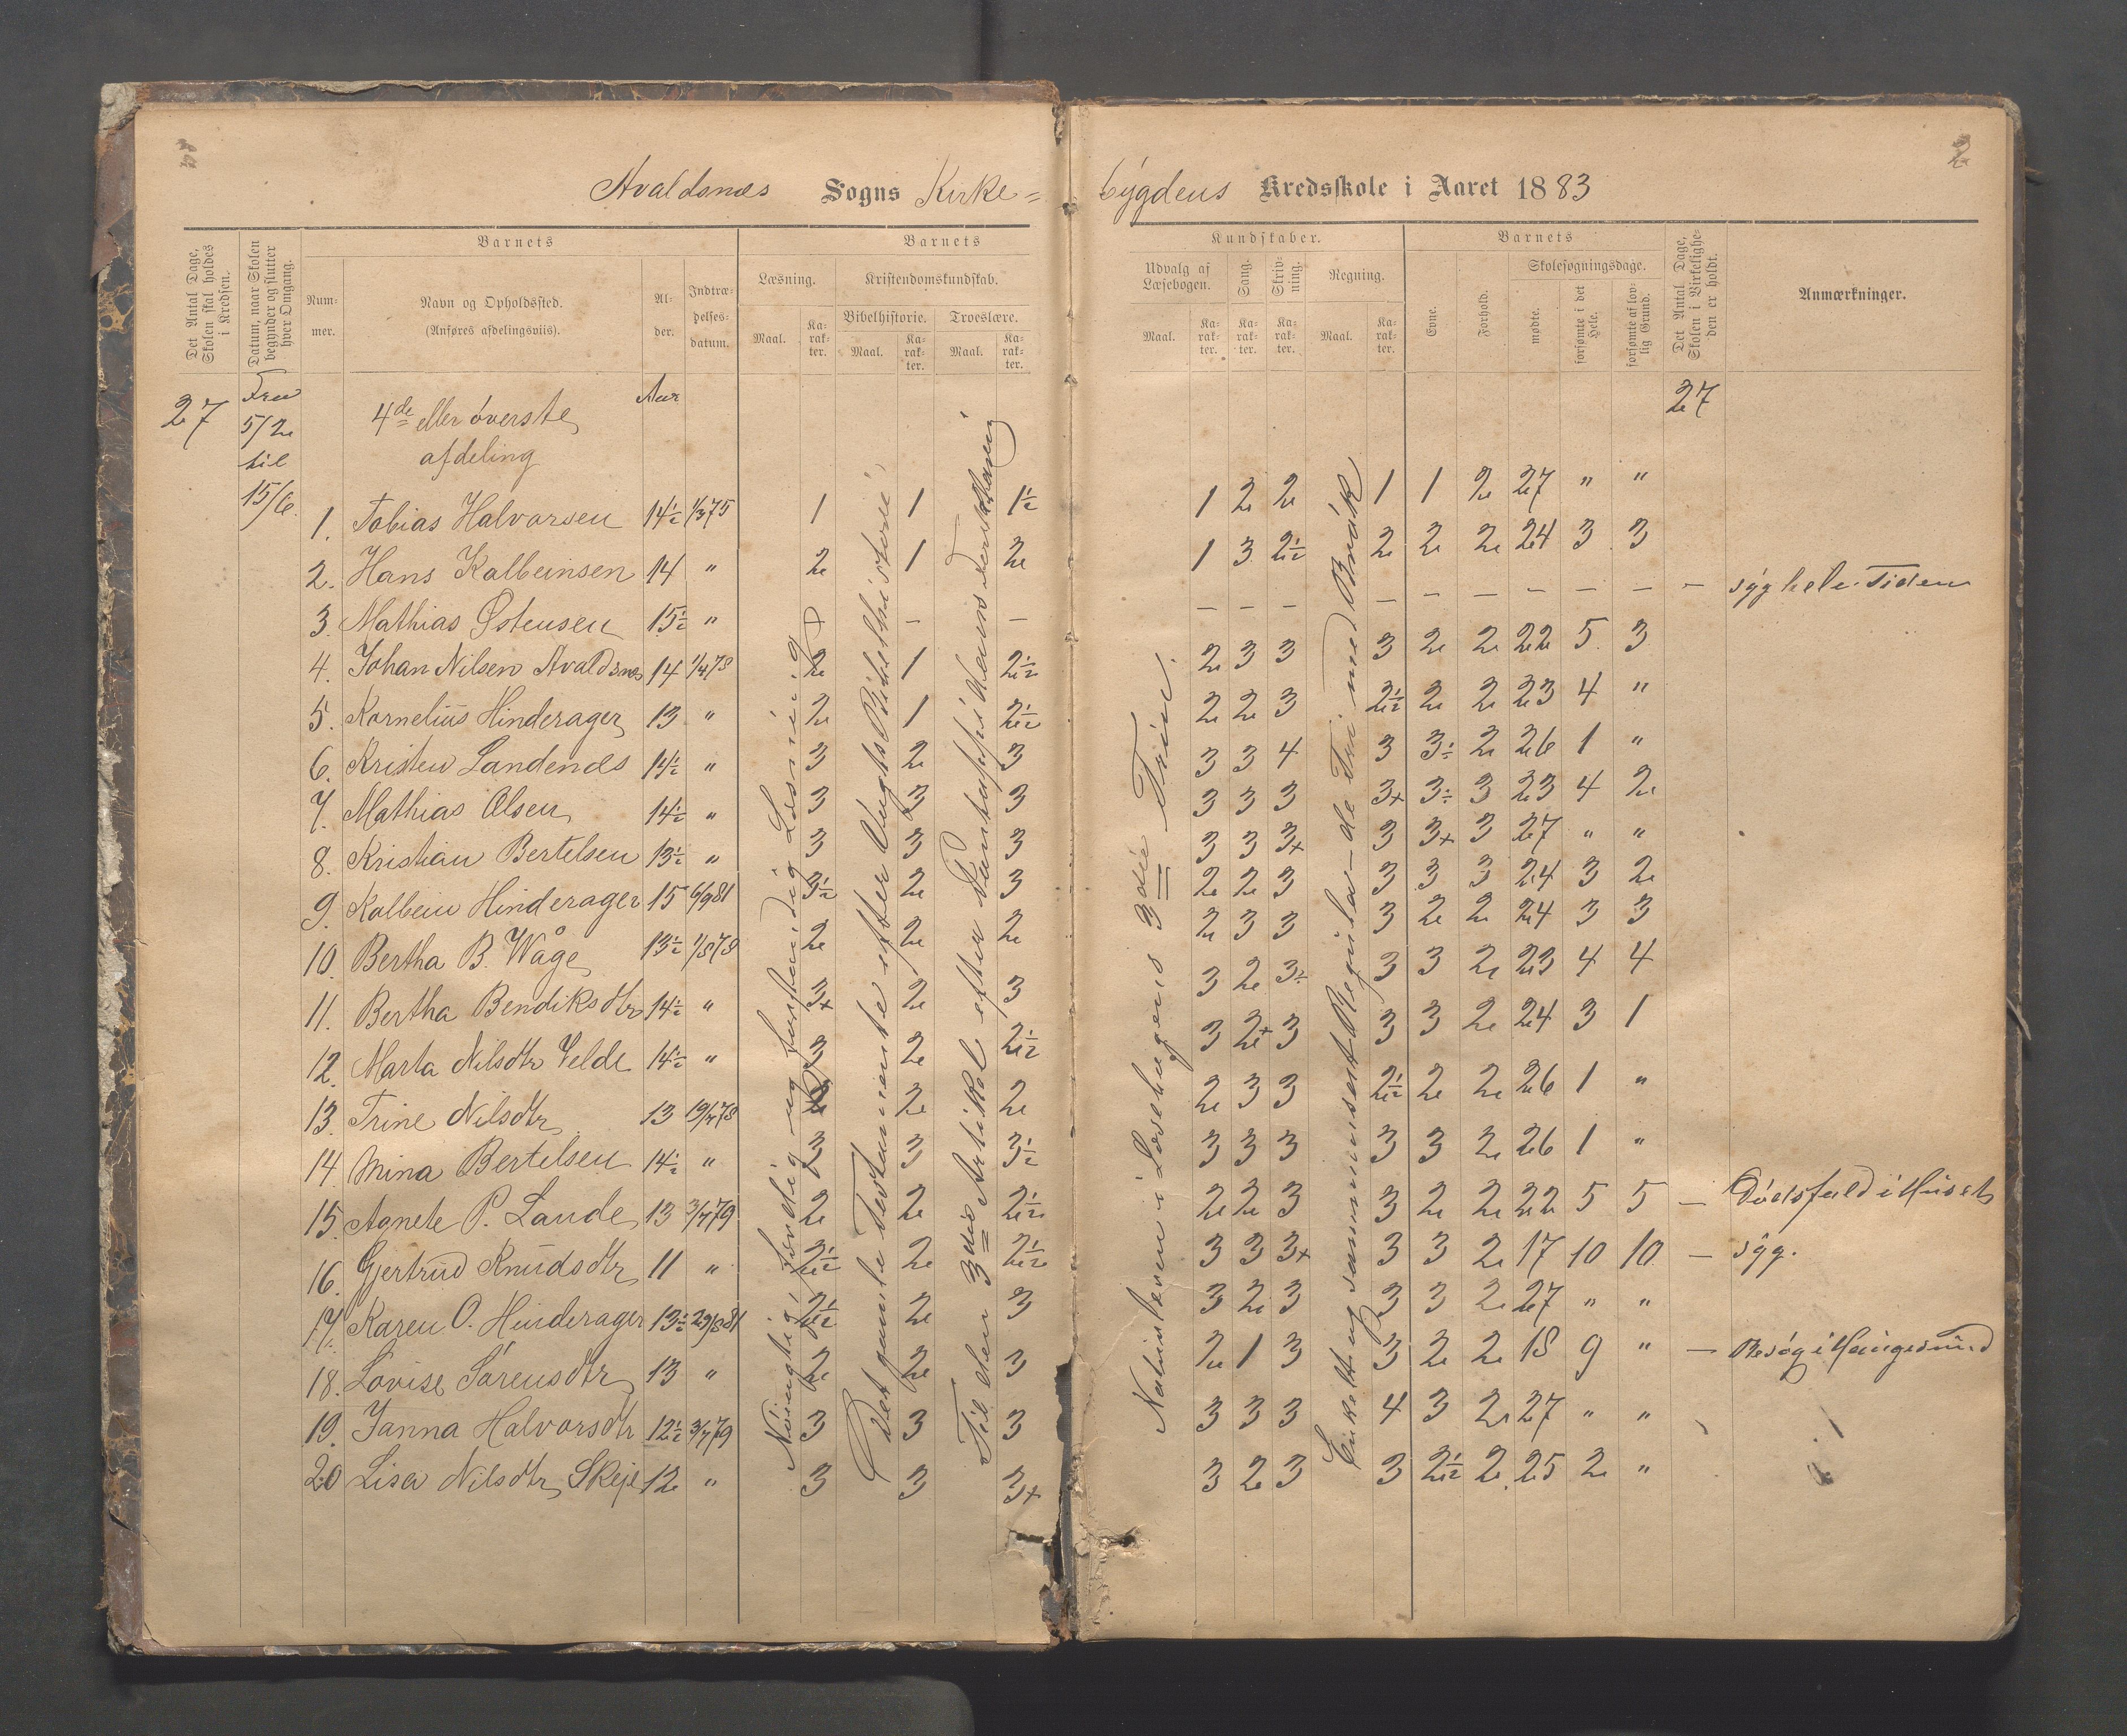 2
Avaldsnæs Sogns Kirke=
bygdens Kredsskole i Aaret 1883
Det Antal Dage, Skolen skal holdes i Kredsen.
Datum, naar Skolen begynder og slutter hver Omgang.
Barnets
Nummer.
Navn og Opholdssted.
(Anføres afdelingsviis).
Alder.
Indtrædelsesdatum.
Barnets
Læsning.
Maal.
Karakter.
Kristendomskundskab.
Bibelhistorie.
Maal.
Karakter.
Troeslære.
Maal.
Karakter.
Kundskaber.
Udvalg af Læsebogen.
Maal.
Karakter.
Sang.
Karakter.
Skrivning.
Karakter.
Regning.
Maal.
Karakter.
Barnets
Evne.
Forhold.
Skolesøgningsdage.
mødte.
forsømte i det Hele.
forsømte af lovlig Grund.
Det Antal Dage, Skolen i Virkeligheden er holdt.
Anmærkninger.
27
Fra
5/2
til
15/6.
4de eller øverste
afdeling
Aar
27
1. Tobias Halvorsen 14½ 1/375 1 1 1½ 1 2 2 1 1 2 27 " "
2. Hans Kalbeinsen 14 " 2 1 2 1 3 2½ 2 2 2 24 3 3
3. Mathias Østensen 15½ " + — — — — — — — — — — — — syg hele Tiden
4. Johan Nilsen Avaldsnæs 14 1/478 2 1 2½ 2 3 3 3 2 2 22 5 3
5. Kornelius Hinderager 13 " 2 1 2½ 2 2 3 2½ 2 2 23 4 "
6. Kristen Landenæs 14½ " 3 2 3 3 3 4 3 3÷ 2 26 1 "
7. Mathias Olsen 14½ " 3 3 3 3 3 3 3+ 3÷ 3 23 4 2
8. Kristian Bertelsen 13½ " 3 3 3 3 3 3+ 3 3+ 3 27 " "
9. Kalbein Hinderager 15 6/981 3½ 2 3 2 2 3 3 3 3 24 3 2
10. Bertha B. Wåge 13½ 1/878 2 2 2 2 3 3 3 2 2 24 3 3
11. Bertha Bendiksdtr 14½ " 3+ 2 3 3 2 3÷ 3 3 2 23 4 4
12. Marta Nilsdtr Velde 14½ " 3 2 2½ 3 2+ 3 3 3 2 24 3 1
13. Trine Nilsdtr 13 19/778 2 2 2 2 3 3 2½ 2 2 26 1 "
14. Mina Bertelsen 14½ " 3 3 3½ 3 3 3 3 3 2 26 1 "
15. Agnete P. Lande 13 3/779 2 2 2½ 2 2 3 3 2 2 22 5 5 — Dødsfald i Huset
16. Gjertrud Knudsdtr 11 " 2½ 2 2½ 3 3 3+ 3 3 2 17 10 10 — syg.
17. Karen O. Hinderager 13½ 29/881 2½ 2 3 3 2 3 3 3 2 27 " "
18. Lovise Sörensdtr 13 " 2 2 3 2 1 3 3 2 2 18 9 " — Besøg i Haugesund
19. Janna Halvorsdtr 12½ 3/779 3 3 3 3 3 3 4 3 2 27 " "
20 Lisa Nilsdtr Skeje 12 " 3 3 3+ 3 2 3 3 2½ 2 25 2 "
Nøiagtig, færdig og forstandig Læsning
Det gamle Testamente efter Vogts Bibelhistorie
Til den 3die Artikel efter Pontoppidans Forklaring
Naturlæren i Læsebogens 3die Trin.
Enkelt og sammensat Reguladetri med Brøk